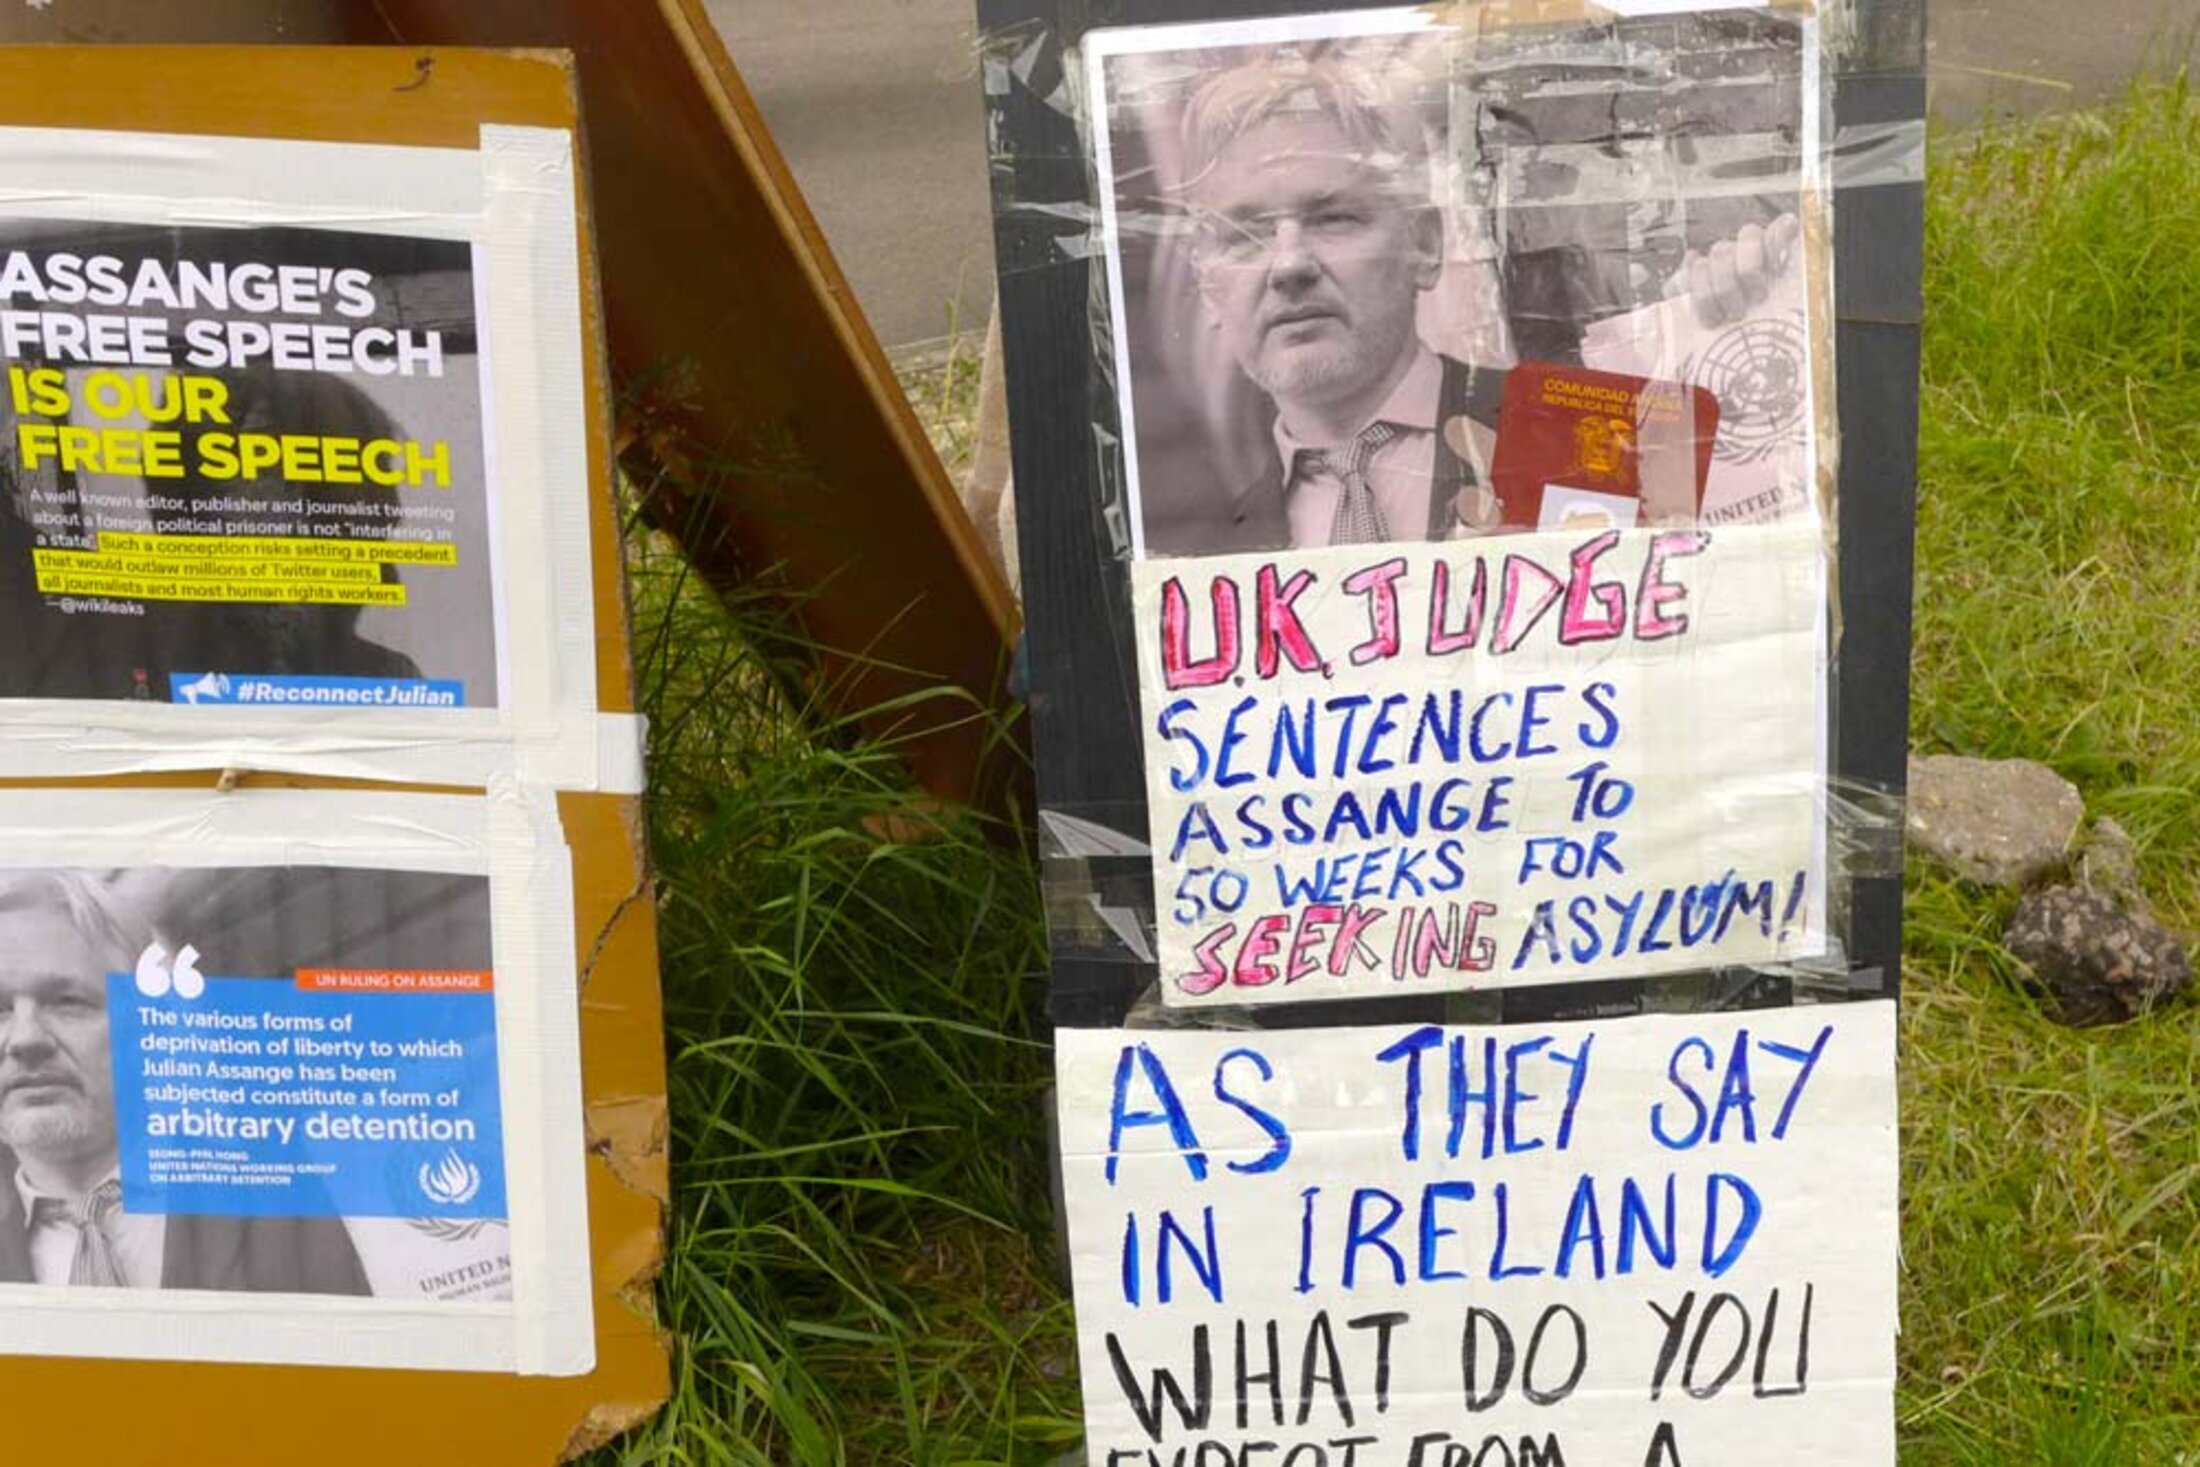 ASSANGE'S
FREE SPEECH
IS OUR
FREE SPEECH
A well known editor, publisher and journalist tweeting
about a foreign political prisoner is not "interfering in
a state". Such a conception risks setting a precedent
that would outlaw millions of Twitter users,
all journalists and most human rights workers.
—@wikileaks
#ReconnectJulian
UN RULING ON ASSANGE
The various forms of
deprivation of liberty to which
Julian Assange has been
subjected constitute a form of
arbitrary detention
SEONG-PHIL HONG
UNITED NATIONS WORKING GROUP
ON ARBITRARY DETENTION
UNITED N
COMUNIDAD
REPUBLICA DEL
UNITED N
U.K. JUDGE
SENTENCES
ASSANGE TO
50 WEEKS FOR
SEEKING ASYLUM!
AS THEY SAY
IN IRELAND
WHAT DO YOU
EXPECT FROM A